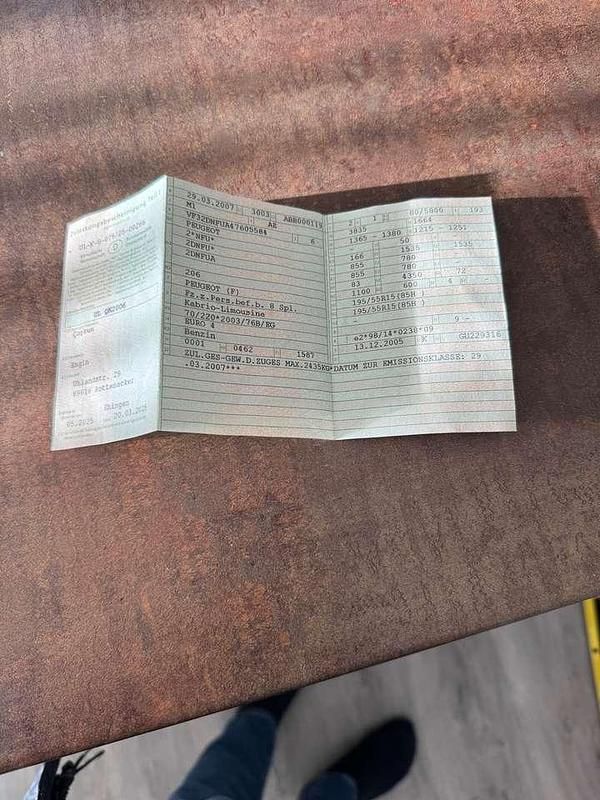 Zulassungsbescheinigung Teil I
UL GM2006
Engin
Uhlandstr. 29
Ehingen
05.2025 20.03.2025
29.03.2007 3003 ABB000119
M1 AE
VF32DNFUA47605584
PEUGEOT 6
2*NFU*
2DNFU*
2DNFUA
206
PEUGEOT (F)
Fz.z.Pers.bef.b. 8 Spl.
Kabrio-Limousine
70/220*2003/76B/EG
EURO 4
Benzin
0001 0462 1587
ZUL.GES-GEW.D.ZUGES MAX.2435KG*DATUM ZUR EMISSIONSKLASSE: 29
.03.2007***
2 1 80/5800 193
3835 -1664
1365 - 1380 -1215 - 1251
50
166 1535 1535
855 780
855 780
83 4350 72
1100 600 4
195/55R15(85H )
195/55R15(85H )
9 -
e2*98/14*0238*09
13.12.2005 K GU229316